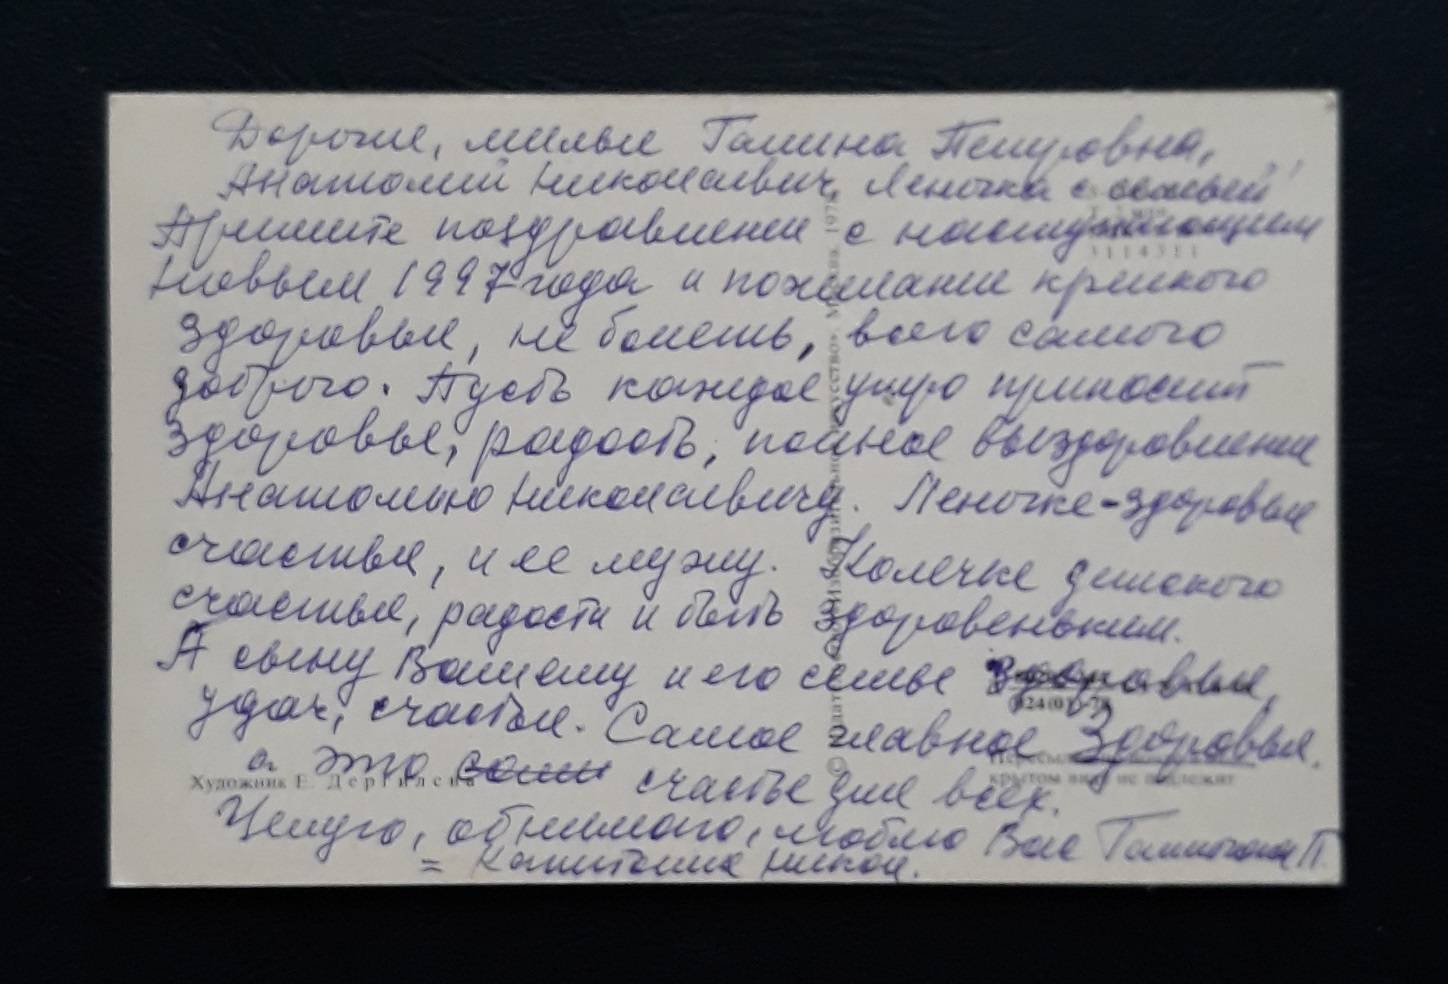 Дорогие, милые Галина Петровна,
Анатолий Николаевич, Леночка с семьей!
Примите поздравления с наступающим
Новым 1997 года и пожелание крепкого
здоровья, не болеть, всего самого
доброго. Пусть каждое утро приносит
здоровье, радость, полное выздоровление
Анатолью Николаевичу. Леночке - здоровья
счастья, и ее мужу. Колечке детского
счастья, радости и быть здоровеньким.
А сыну Вашему и его семье здоровья,
удач, счастья. Самое главное Здоровья.
а это счастье для всех.
Целую, обнимаю, люблю Вас Галиночка П.
= Капитолина Никол.
Художник Е. Дергилева
3114311
© Издательство «Изобразительное искусство». Москва. 197
крытом виде не подлежит